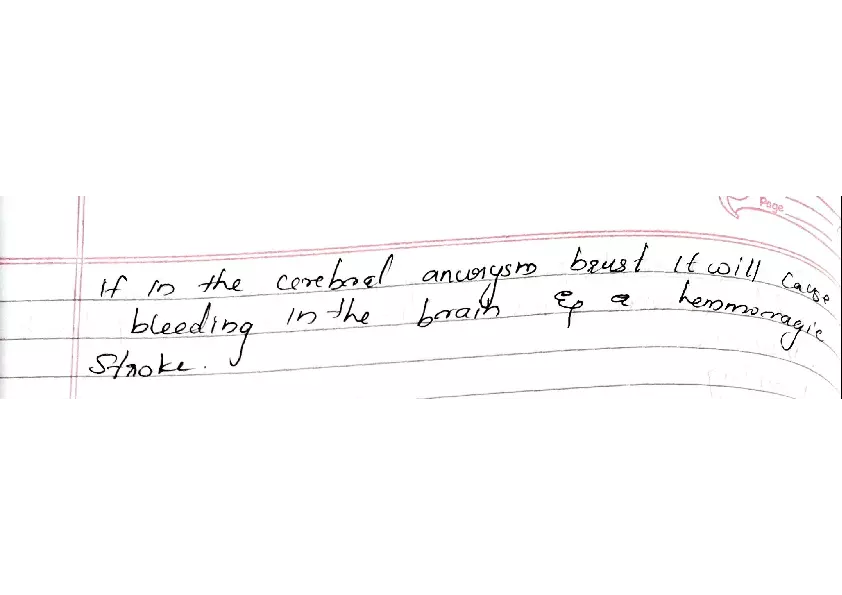 Page
If in the cerebral aneurysm brust it will cause
bleeding in the brain & a hemmorragic
Stroke.